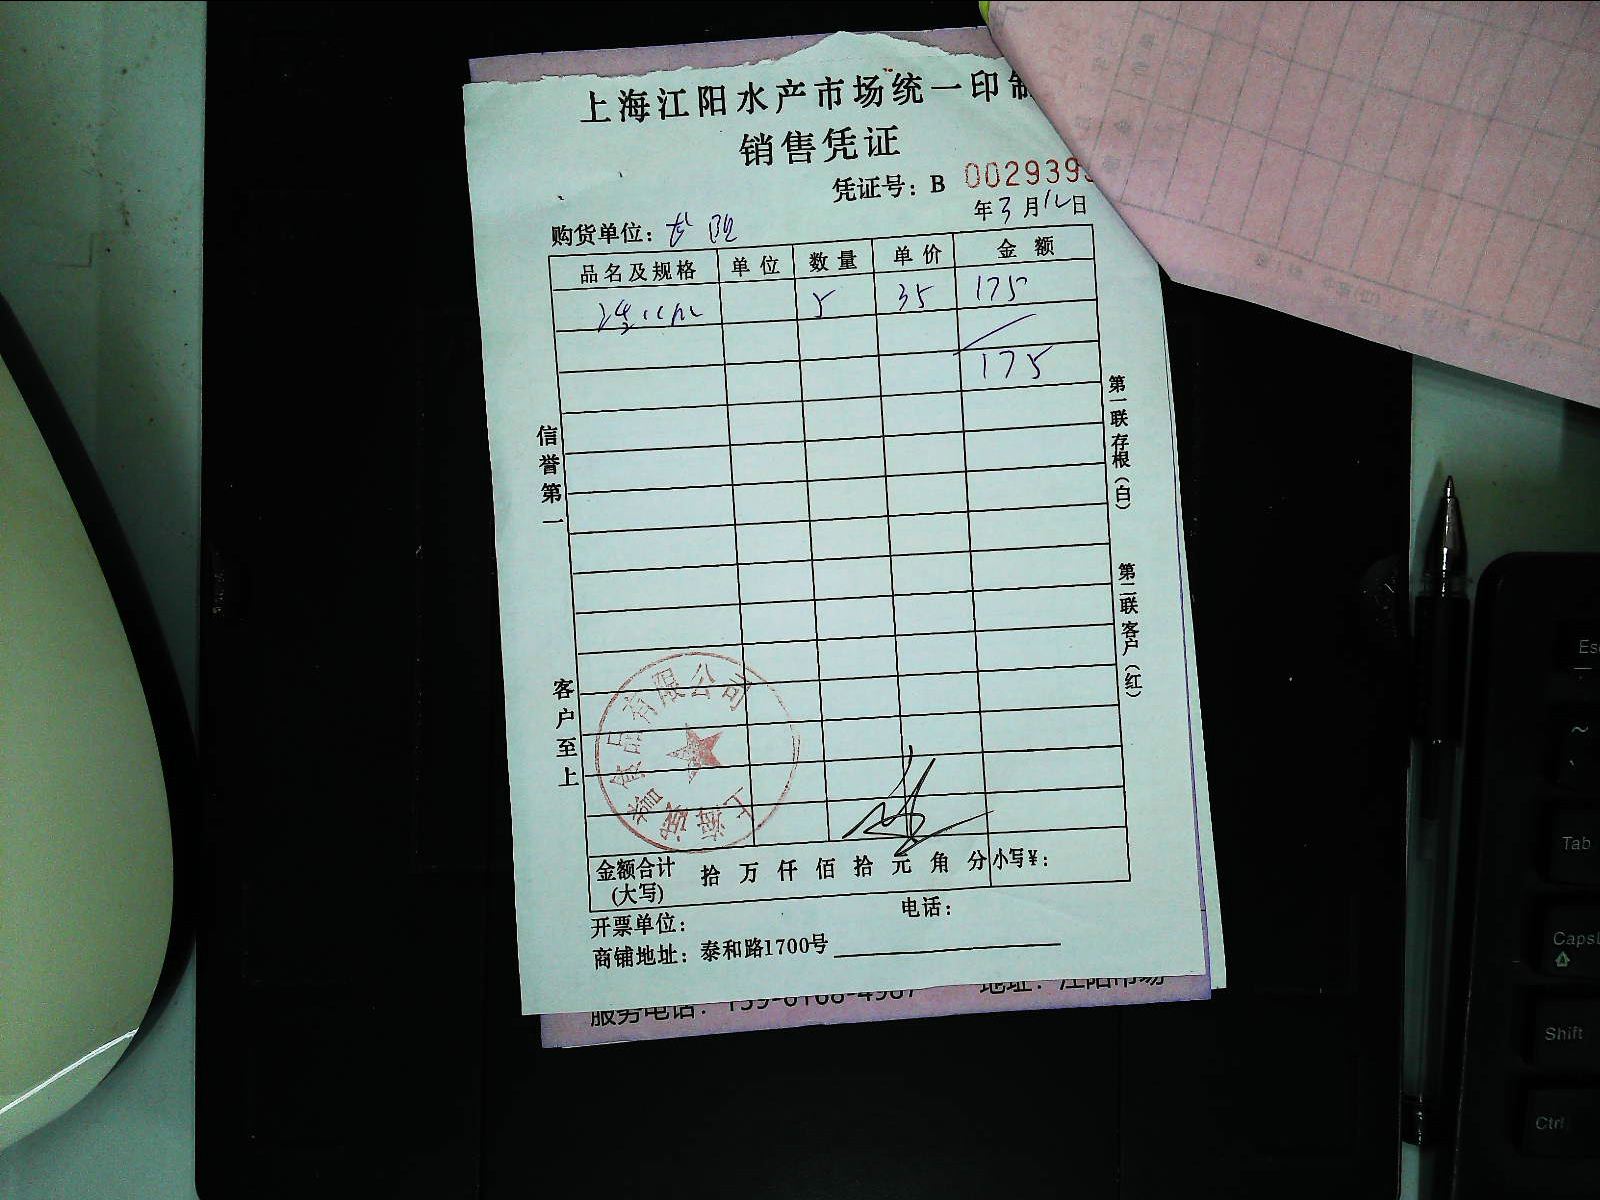 上海江阳水产市场统一印制
销售凭证
凭证号：B 0029393
年3月12日
购货单位：
品名及规格 单位 数量 单价 金额
5 35 175
175
信誉第一
客户至上
第一联存根（白）
第二联客户（红）
上海诚誉食品有限公司
金额合计(大写) 拾 万 仟 佰 拾 元 角 分 小写¥：
开票单位： 电话：
商铺地址：泰和路1700号
服务电话： 地址：江阳市场
Esc
~
Tab
Caps
Shift
Ctrl